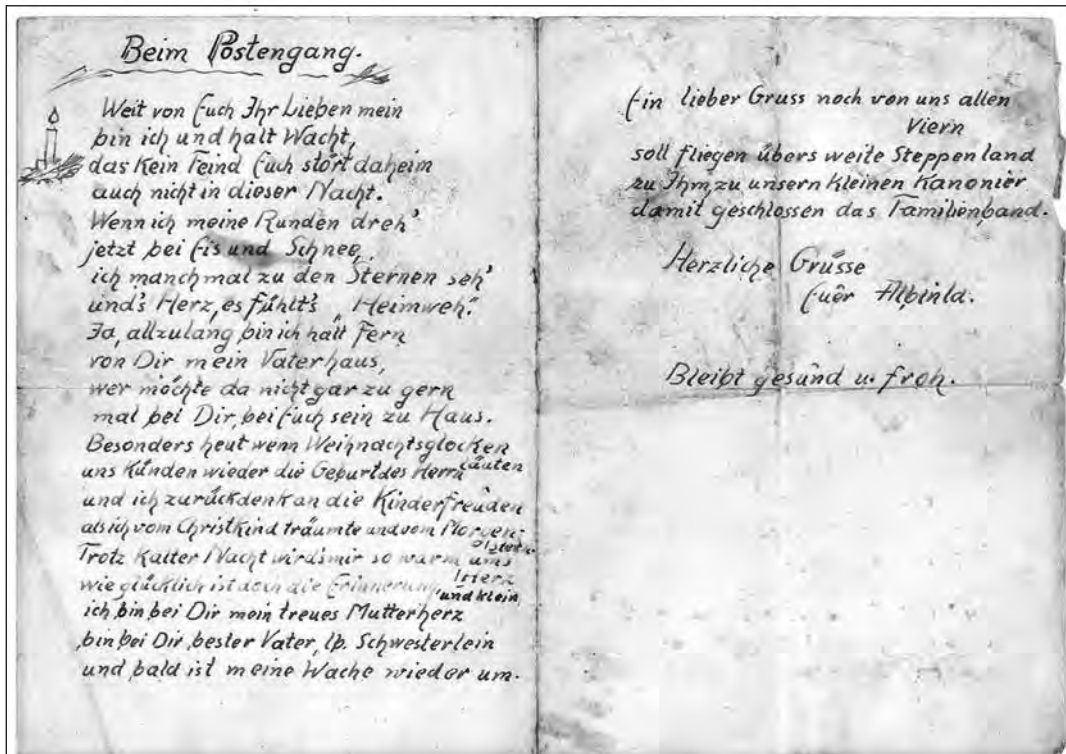 Beim Postengang.
Weit von Euch Ihr Lieben mein
bin ich und halt Wacht,
das Kein Feind Euch stört daheim
auch nicht in dieser Nacht.
Wenn ich meine Runden dreh'
jetzt bei Eis und Schnee,
ich manchmal zu den Sternen seh'
und's Herz, es fühlt's „Heimweh".
Ja, allzulang bin ich halt Fern
von Dir mein Vaterhaus,
wer möchte da nicht gar zu gern
mal bei Dir, bei Euch sein zu Haus.
Besonders heut wenn Weihnachtsglocken
läuten
uns Künden wieder die Geburt des Herrn
und ich zurückdenk an die Kinderfreuden
als ich vom Christkind träumte und vom Morgen-
Trotz Kalter Nacht wird's mir so warm ums
Herz
wie glücklich ist doch die Erinnerung,
und klein
ich bin bei Dir mein treues Mutterherz
bin bei Dir, bester Vater, lb. Schwesterlein
und bald ist meine Wache wieder um.
Ein lieber Gruss noch von uns allen
Viern
soll fliegen übers weite Steppenland
zu Ihm, zu unsern Kleinen Kanonier
damit geschlossen das Familienband.
Herzliche Grüsse
Euer
Bleibt gesund u. froh.